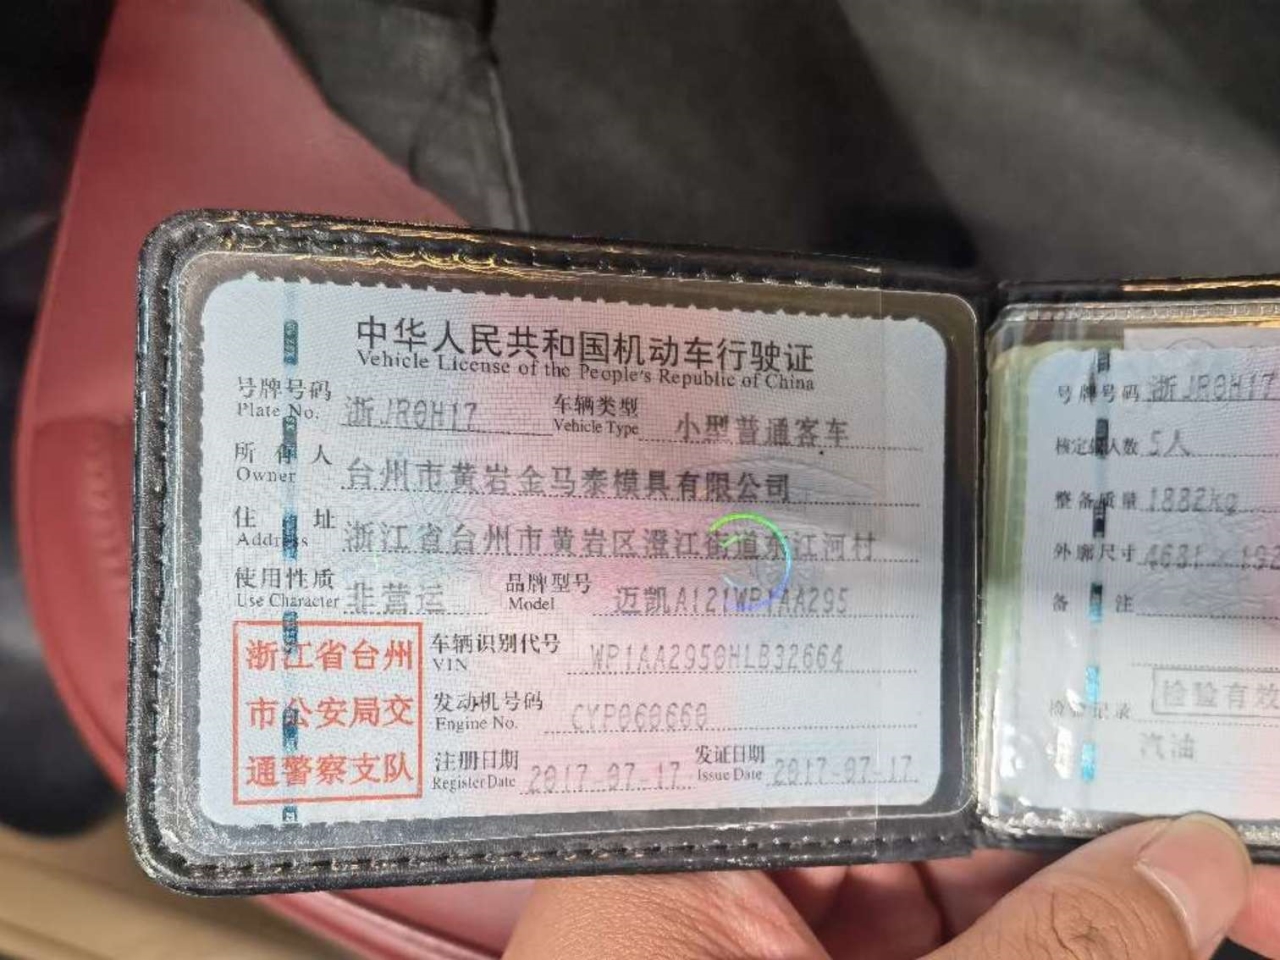 中华人民共和国机动车行驶证
Vehicle License of the People's Republic of China
号牌号码 浙JR0H17 车辆类型 小型普通客车
Plate No. Vehicle Type
所有人 台州市黄岩金马泰模具有限公司
Owner
住址 浙江省台州市黄岩区澄江街道东江河村
Address
使用性质 非营运 品牌型号 迈凯A121WP1AA295
Use Character Model
浙江省台州
市公安局交
通警察支队
车辆识别代号 WP1AA2950HLB32664
VIN
发动机号码 CYP060660
Engine No.
注册日期 2017-07-17 发证日期 2017-07-17
Register Date Issue Date
号牌号码 浙JR0H17
核定载人数 5人
整备质量 1882kg
外廓尺寸 4681×192
备注
检验有效
检验记录
汽油